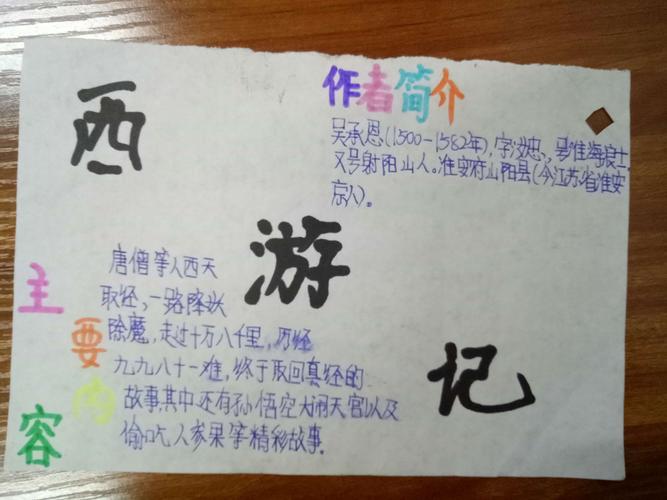 西
游
记
作者简介
吴承恩(1500-1582年),字汝忠,号淮海浪士
又号射阳山人。淮安府山阳县(今江苏省淮安
京人)。
主要内容
唐僧等人西天
取经,一路降妖
除魔,走过十万八千里,历经
九九八十一难,终于取回真经的
故事其中还有孙悟空大闹天宫以及
偷吃人参果等精彩故事.